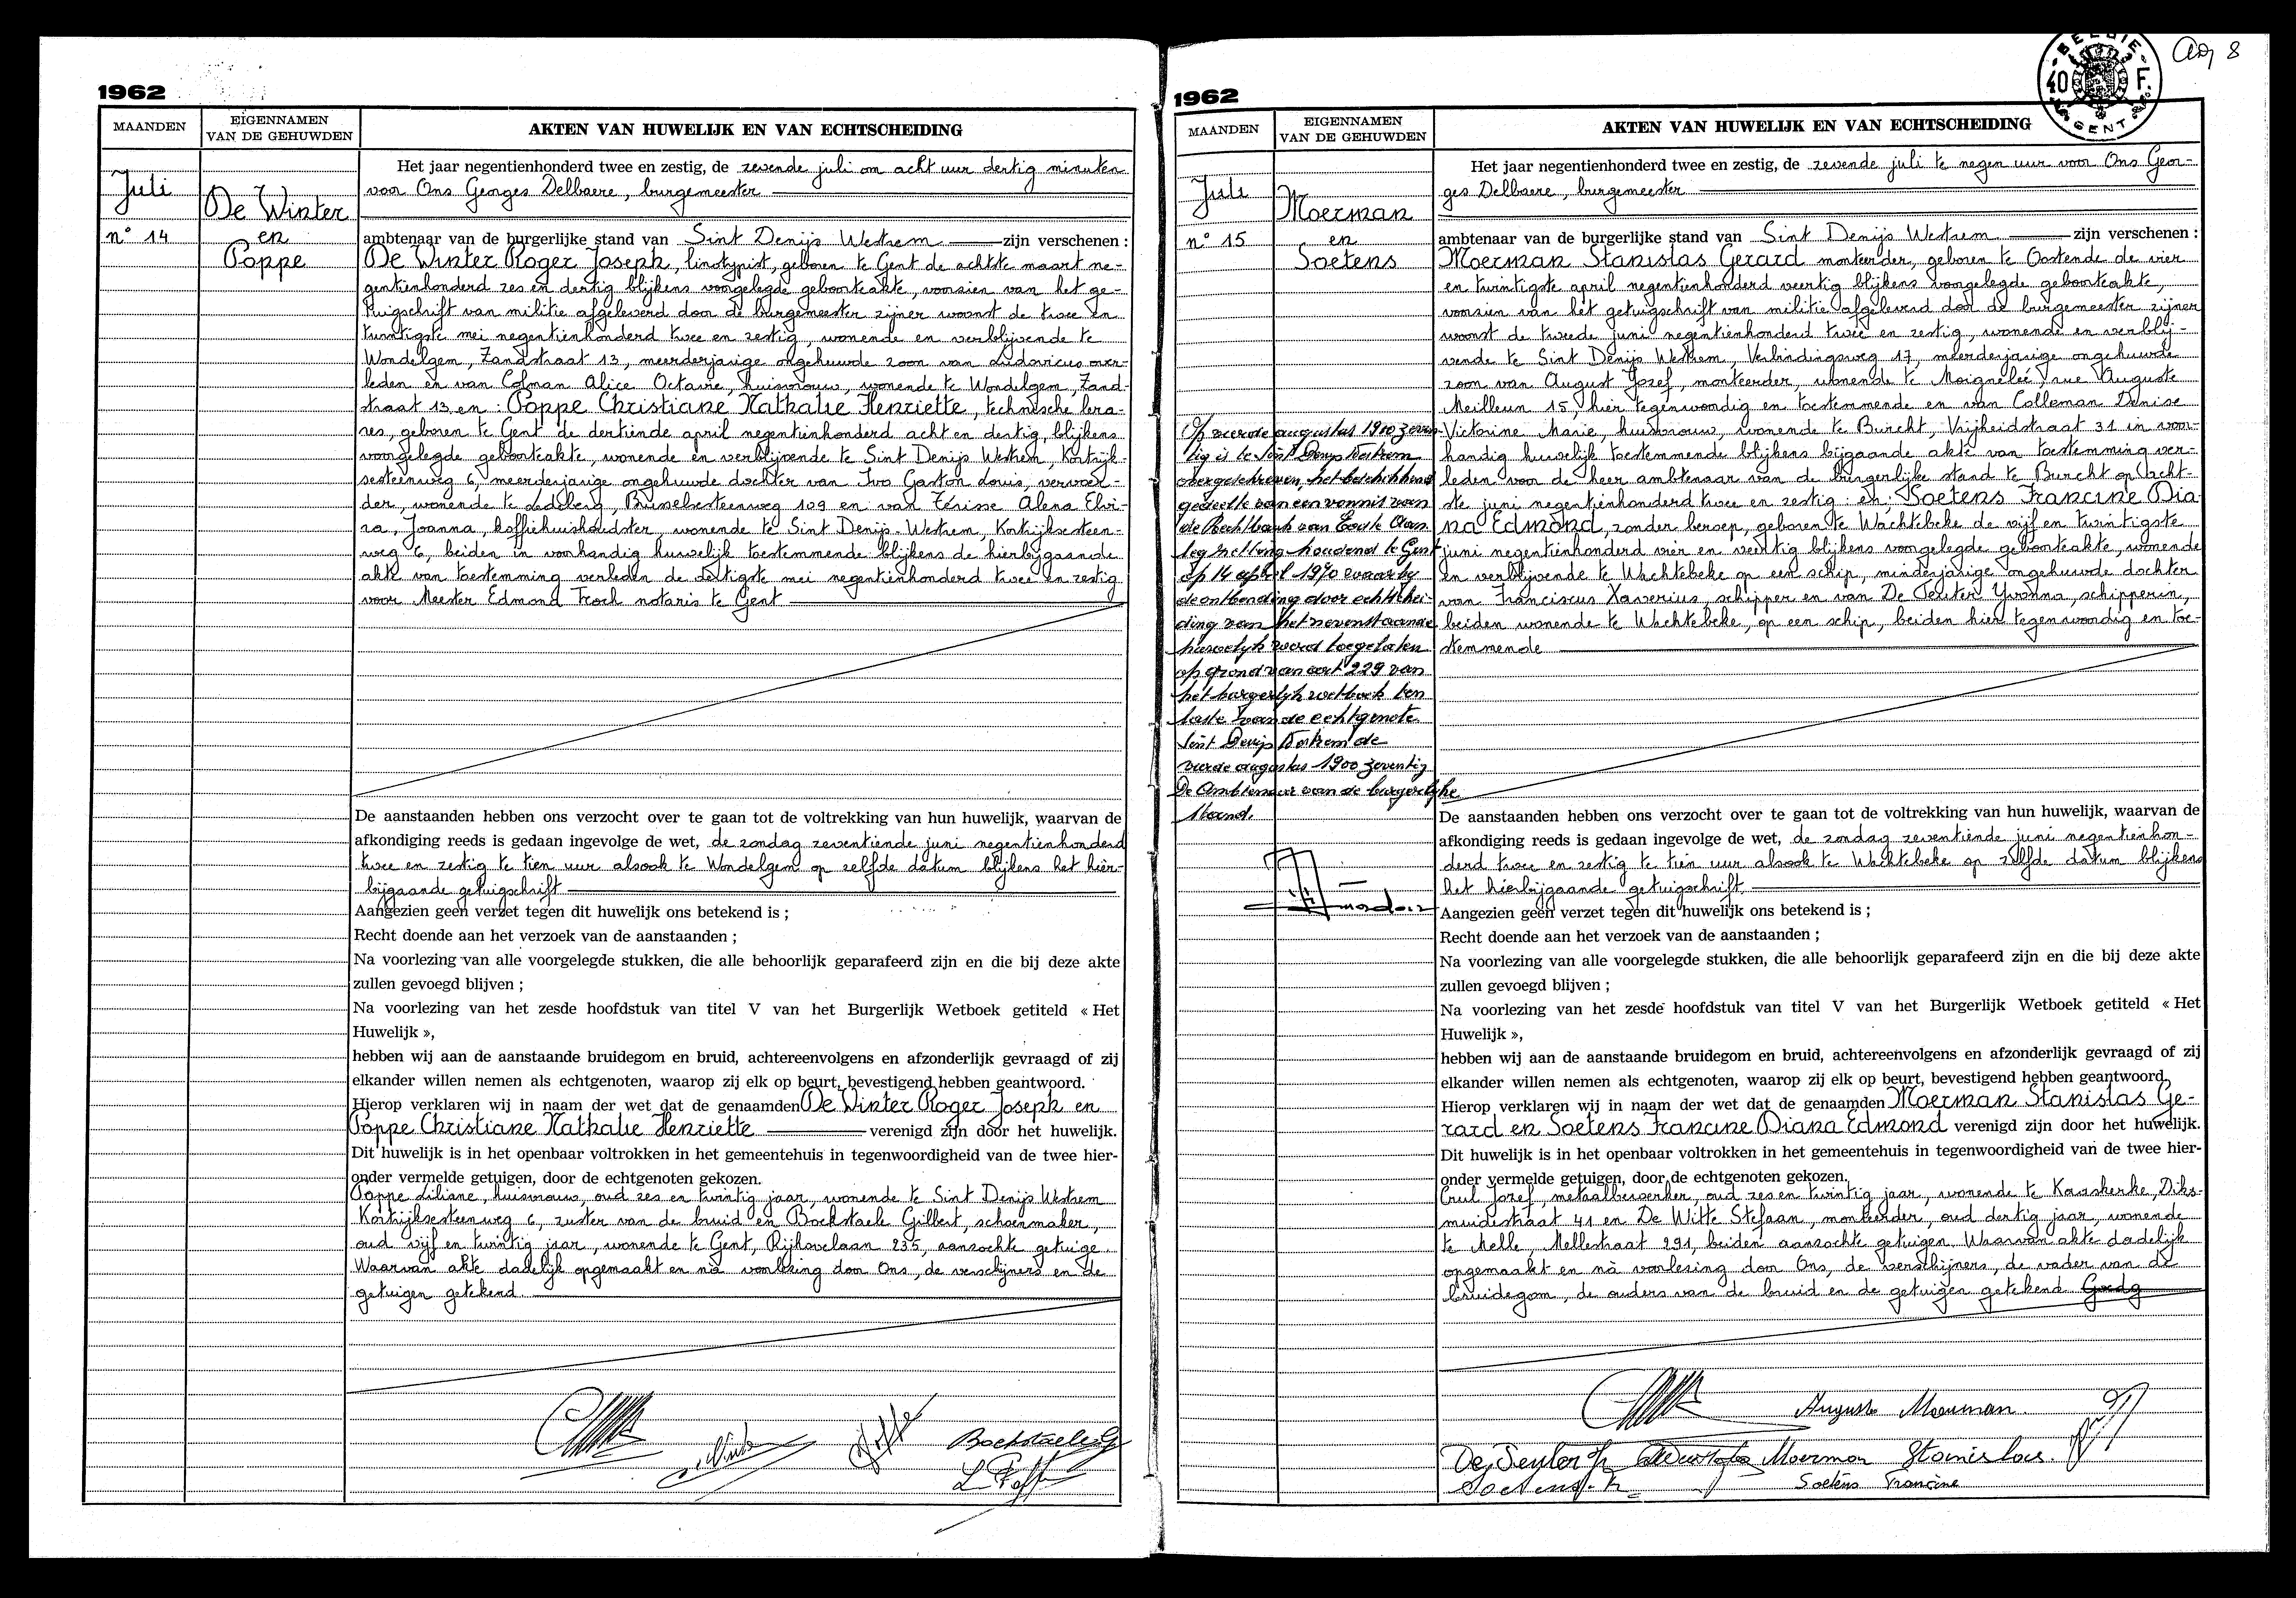 1962
MAANDEN
EIGENNAMEN
VAN DE GEHUWDEN
AKTEN VAN HUWELIJK EN VAN ECHTSCHEIDING
Juli
n° 14
De Winter
en
Poppe
Het jaar negentienhonderd twee en zestig, de zevende juli om acht uur dertig minuten
voor Ons Georges Delbaere, burgemeester
ambtenaar van de burgerlijke stand van Sint Denijs Westrem zijn verschenen :
De Winter Roger Joseph, linotypist, geboren te Gent de achtste maart ne-
gentienhonderd zes en dertig blijkens voorgelegde geboorteakte, voorzien van het ge-
tuigschrift van militie afgeleverd door de burgemeester zijner woonst de twee en
twintigste mei negentienhonderd twee en zestig, wonende en verblijvende te
Wondelgem, Zandstraat 13, meerderjarige ongehuwde zoon van Ludovicus over-
leden en van Colman Alice Octavie, huisvrouw, wonende te Wondelgem, Zand-
straat 13 en : Poppe Christiane Nathalie Henriette, technische lera-
res, geboren te Gent de dertiende april negentienhonderd acht en dertig, blijkens
voorgelegde geboorteakte, wonende en verblijvende te Sint Denijs Westrem, Kortrijk-
sesteenweg 6, meerderjarige ongehuwde dochter van Ivo Gaston Louis, vervoer-
der, wonende te Ledeberg, Brusselsesteenweg 109 en van Alena Elvi-
ra, Joanna, koffiehuishoudster, wonende te Sint Denijs-Westrem, Kortrijksesteen-
weg 6, beiden in voorhandig huwelijk toestemmende blijkens de hierbijgaande
akte van toestemming verleden de dertigste mei negentienhonderd twee en zestig
voor Meester Edmond Troch notaris te Gent
De aanstaanden hebben ons verzocht over te gaan tot de voltrekking van hun huwelijk, waarvan de
afkondiging reeds is gedaan ingevolge de wet, de zondag zeventiende juni negentienhonderd
twee en zestig te tien uur alsook te Wondelgem op zelfde datum blijkens het hier-
bijgaande getuigschrift
Aangezien geen verzet tegen dit huwelijk ons betekend is ;
Recht doende aan het verzoek van de aanstaanden ;
Na voorlezing van alle voorgelegde stukken, die alle behoorlijk geparafeerd zijn en die bij deze akte
zullen gevoegd blijven ;
Na voorlezing van het zesde hoofdstuk van titel V van het Burgerlijk Wetboek getiteld « Het
Huwelijk »,
hebben wij aan de aanstaande bruidegom en bruid, achtereenvolgens en afzonderlijk gevraagd of zij
elkander willen nemen als echtgenoten, waarop zij elk op beurt, bevestigend hebben geantwoord.
Hierop verklaren wij in naam der wet dat de genaamden De Winter Roger Joseph en
Poppe Christiane Nathalie Henriette verenigd zijn door het huwelijk.
Dit huwelijk is in het openbaar voltrokken in het gemeentehuis in tegenwoordigheid van de twee hier-
onder vermelde getuigen, door de echtgenoten gekozen.
Poppe Liliane, huisvrouw, oud zes en twintig jaar, wonende te Sint Denijs Westrem
Kortrijksesteenweg 6, zuster van de bruid en Bockstaele Gilbert, schoenmaker,
oud vijf en twintig jaar, wonende te Gent, Rijhovelaan 235, aanzochte getuige.
Waarvan akte dadelijk opgemaakt en nà voorlezing door Ons, de verschijners en de
getuigen getekend.
Bockstaele G
L. Poppe
1962
BELGIE
40 F.
GENT
8
MAANDEN
EIGENNAMEN
VAN DE GEHUWDEN
AKTEN VAN HUWELIJK EN VAN ECHTSCHEIDING
Juli
n° 15
Moerman
en
Soetens
Op vierde augustus 1900 zeven-
tig is te Sint Denijs Westrem
overgeschreven, het beschikkend
gedeelte van een vonnis van
de Rechtbank van Eerste Aan-
leg zitting houdend te Gent
op 14 april 1970 waarbij
de ontbinding door echtschei-
ding van het nevenstaande
huwelijk werd toegelaten
op grond van art 229 van
het burgerlijk wetboek ten
laste van de echtgenote
Sint Denijs Westrem de
vierde augustus 1900 zeventig
De Ambtenaar van de burgerlijke
stand.
Het jaar negentienhonderd twee en zestig, de zevende juli te negen uur voor Ons Geor-
ges Delbaere, burgemeester
ambtenaar van de burgerlijke stand van Sint Denijs Westrem zijn verschenen :
Moerman Stanislas Gerard monteerder, geboren te Oostende de vier
en twintigste april negentienhonderd veertig blijkens voorgelegde geboorteakte,
voorzien van het getuigschrift van militie afgeleverd door de burgemeester zijner
woonst de tweede juni negentienhonderd twee en zestig, wonende en verblij-
vende te Sint Denijs Westrem, Verbindingsweg 17, meerderjarige ongehuwde
zoon van August Jozef, monteerder, wonende te Moignelée, rue Auguste
15, hier tegenwoordig en toestemmende en van Colleman Denise
Victorine Marie, huisvrouw, wonende te Burcht, Vrijheidstraat 31 in voor-
handig huwelijk toestemmende blijkens bijgaande akte van toestemming ver-
leden voor de heer ambtenaar van de burgerlijke stand te Burcht op acht-
ste juni negentienhonderd twee en zestig : en : Soetens Francine Dia-
na Edmond, zonder beroep, geboren te Wachtebeke de vijf en twintigste
juni negentienhonderd vier en veertig blijkens voorgelegde geboorteakte, wonende
en verblijvende te Wachtebeke op een schip, minderjarige ongehuwde dochter
van Franciscus Xaverius, schipper en van De Seuter Yvonna, schipperin,
beiden wonende te Wachtebeke, op een schip, beiden hier tegenwoordig en toe-
stemmende
De aanstaanden hebben ons verzocht over te gaan tot de voltrekking van hun huwelijk, waarvan de
afkondiging reeds is gedaan ingevolge de wet, de zondag zeventiende juni negentienhon-
derd twee en zestig te tien uur alsook te Wachtebeke op zelfde datum blijkens
het hierbijgaande getuigschrift
Aangezien geen verzet tegen dit huwelijk ons betekend is ;
Recht doende aan het verzoek van de aanstaanden ;
Na voorlezing van alle voorgelegde stukken, die alle behoorlijk geparafeerd zijn en die bij deze akte
zullen gevoegd blijven ;
Na voorlezing van het zesde hoofdstuk van titel V van het Burgerlijk Wetboek getiteld « Het
Huwelijk »,
hebben wij aan de aanstaande bruidegom en bruid, achtereenvolgens en afzonderlijk gevraagd of zij
elkander willen nemen als echtgenoten, waarop zij elk op beurt, bevestigend hebben geantwoord.
Hierop verklaren wij in naam der wet dat de genaamden Moerman Stanislas Ge-
rard en Soetens Francine Diana Edmond verenigd zijn door het huwelijk.
Dit huwelijk is in het openbaar voltrokken in het gemeentehuis in tegenwoordigheid van de twee hier-
onder vermelde getuigen, door de echtgenoten gekozen.
Jozef, metaalbewerker, oud zes en twintig jaar, wonende te Kaaskerke, Diks-
muidestraat 41 en De Witte Stefaan, monteerder, oud dertig jaar, wonende
te Melle, Mellestraat 291, beiden aanzochte getuigen. Waarvan akte dadelijk
opgemaakt en nà voorlesing door Ons, de verschijners, de vader van de
bruidegom, de ouders van de bruid en de getuigen getekend
Auguste Moerman.
Moerman Stanislas.
Soetens Francine